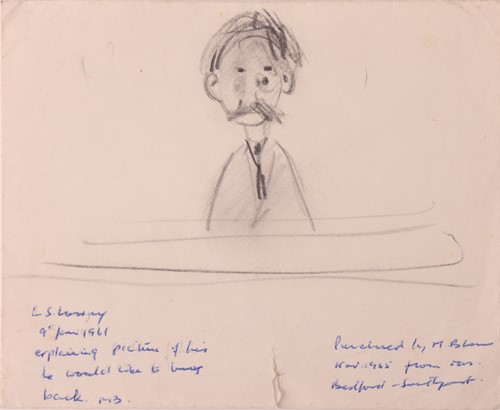 L S Lowry
9th Jan 1961
explaining picture of his
he would like to buy
back. MB.
Purchased by M. Bloom
Nov. 1965 from
Bedford - Southport.